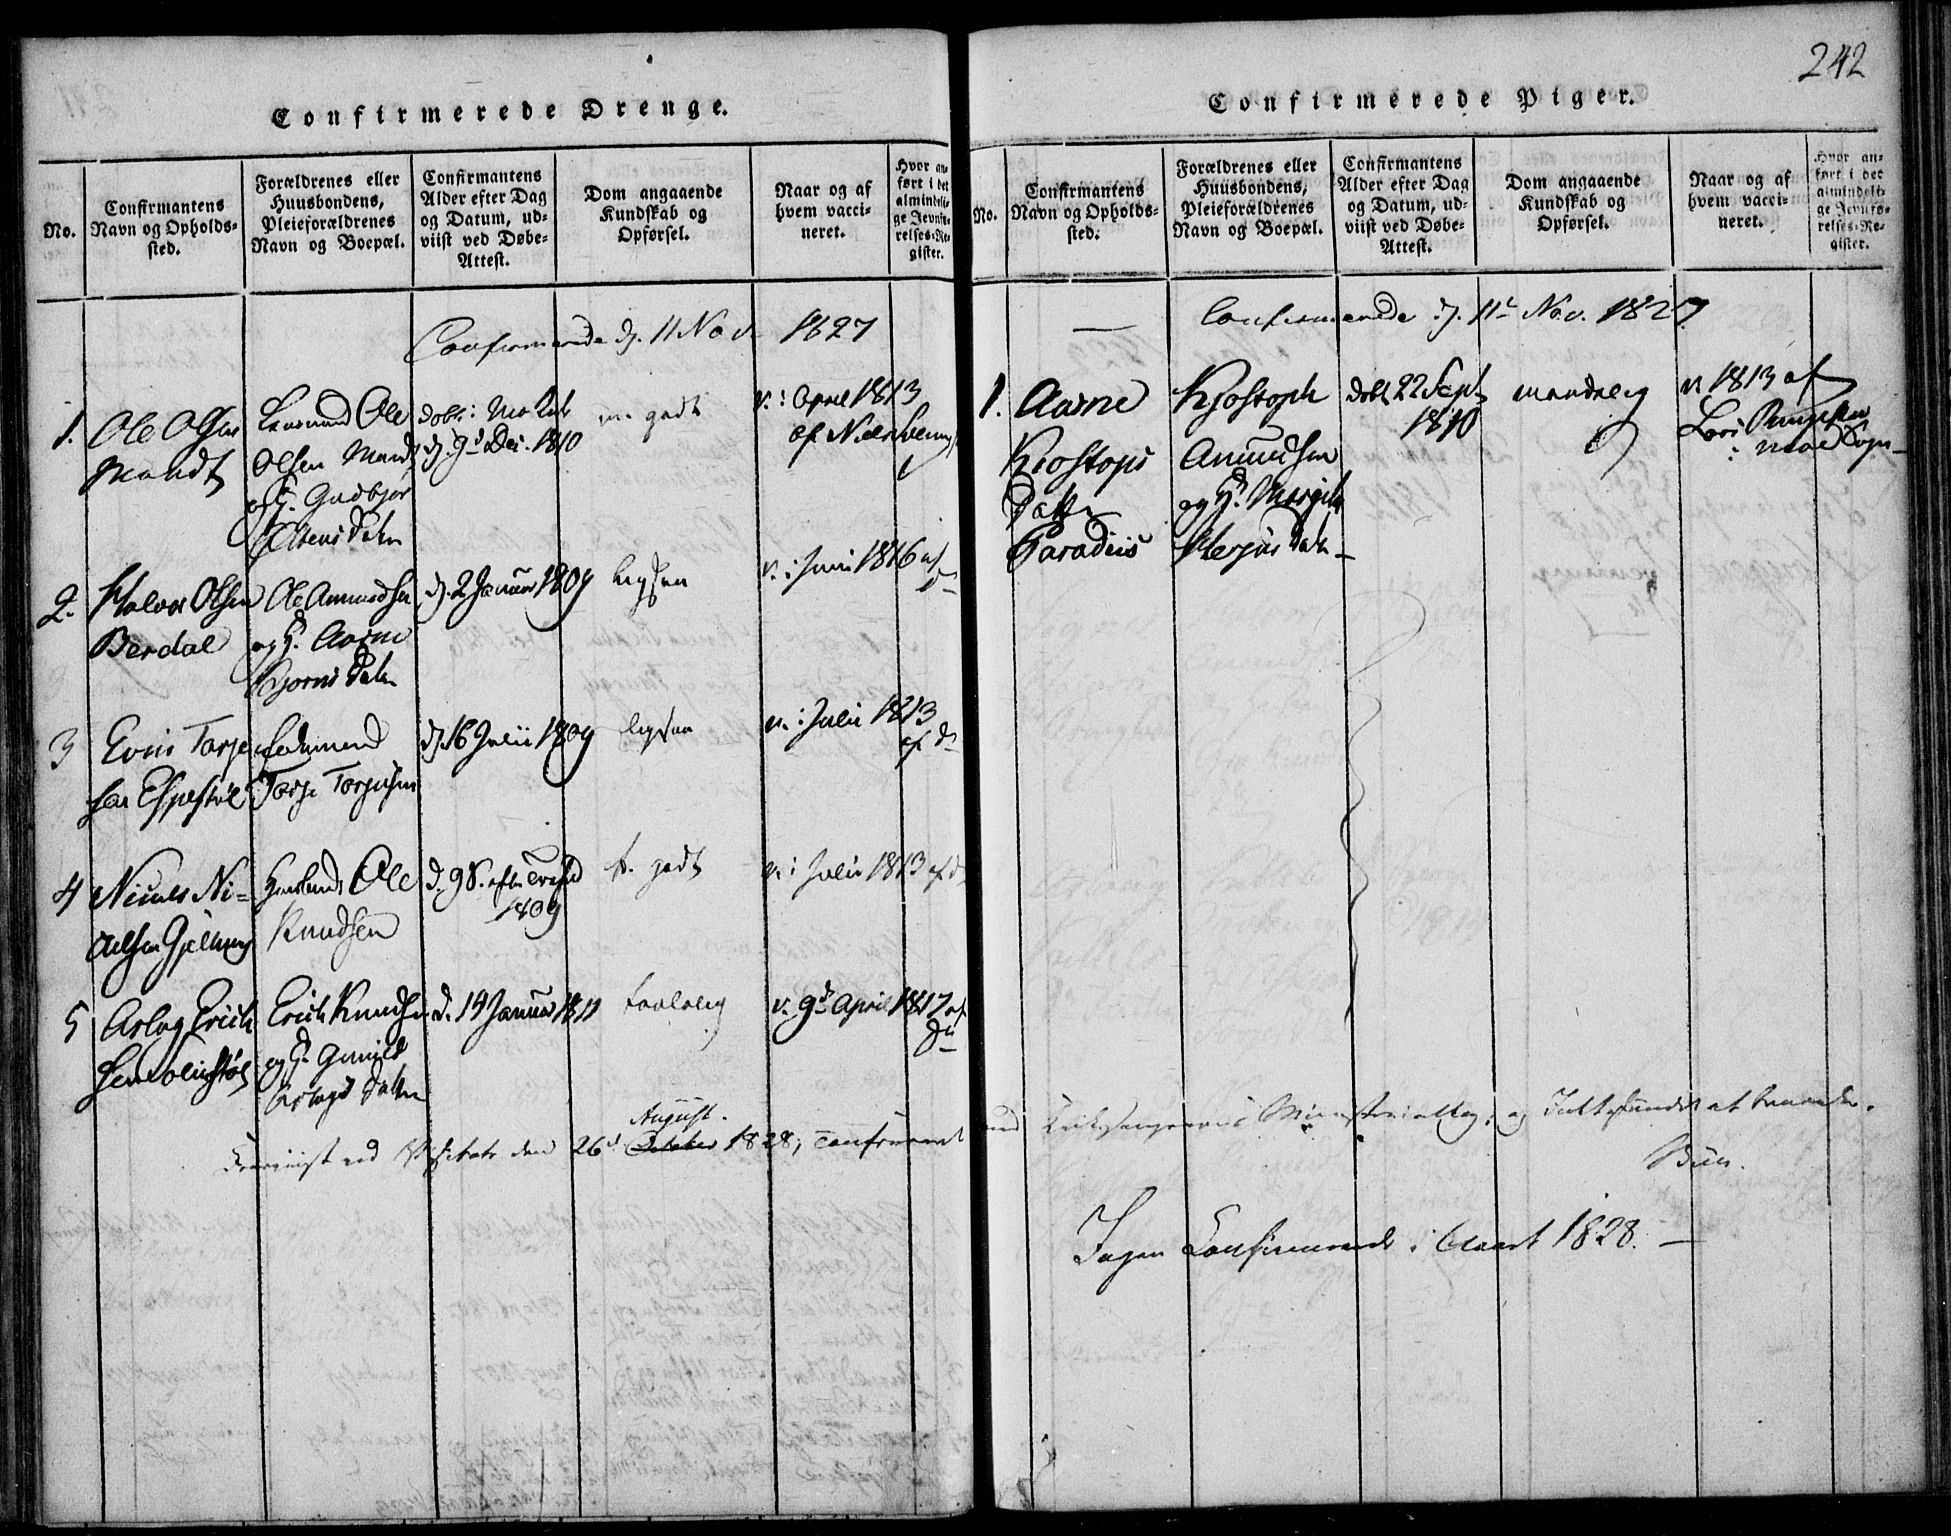 Confirmerede Drenge.
No.
Confirmantens
Navn og Opholds-
sted.
Forældrenes eller
Huusbondens,
Pleieforældrenes
Navn og Boepæl.
Confirmantens
Alder efter Dag
og Datum, ud-
viist ved Døbe-
Attest.
Dom angaaende
Kundskab og
Opførsel.
Naar og af
hvem vacci-
neret.
Hvor an-
ført i det
almindeli-
ge Jevnfø-
relses-Re-
gister.
Confirmerede d. 11 Nov. 1827
1.
Ole Olsen
Mandt
Ole
Olsen Mandt
og H. Gudbjør
datter
døbt
d. 9d Dec. 1810
m. godt
v. i April 1813
af
2.
Halvor Olsen
Berdal
Ole Amundsen
og H. Aasne
Bjørns datter
d. 2 Januar 1809
ligesaa
v. i Juni 1816 af
do
3
Evin Torje
sen Espestøl
Torje Torjusen
d. 16 Julii 1809
ligesaa
v. i Julii 1813
af do
4
Niculs Ni=
Ole
Knudsen
d. 9 S. efter Trefold
1809
t. godt
v. i Julii 1813 af do
5
Aslag Erich
sen
Erich Knudsen
og H. Gunild
Aslags datter
d. 14 Januar 1811
taalelig
v. 9d April 1817 af
do
August.
ved Visitats den 26d October 1828, confereret
242
Confirmerede Piger.
No.
Confirmantens
Navn og Opholds-
sted.
Forældrenes eller
Huusbondens,
Pleieforældrenes
Navn og Boepæl.
Confirmantens
Alder efter Dag
og Datum, ud-
viist ved Døbe-
Attest.
Dom angaaende
Kundskab og
Opførsel.
Naar og af
hvem vacci-
neret.
Hvor an-
ført i det
almindeli-
ge Jevnfø-
relses-Re-
gister.
Confirmerede d. 11te Nov. 1827.
1.
Aasne
Kjostops
Datter
Paradiis
Kjostoph
Amundsen
og H. Margit
Herjus datter
døbt 22 Sept
1810
maadelig
v. 1813 af
med Klokkerens Ministerialbog, og
Ingen Confirmerede i Aaret 1828.